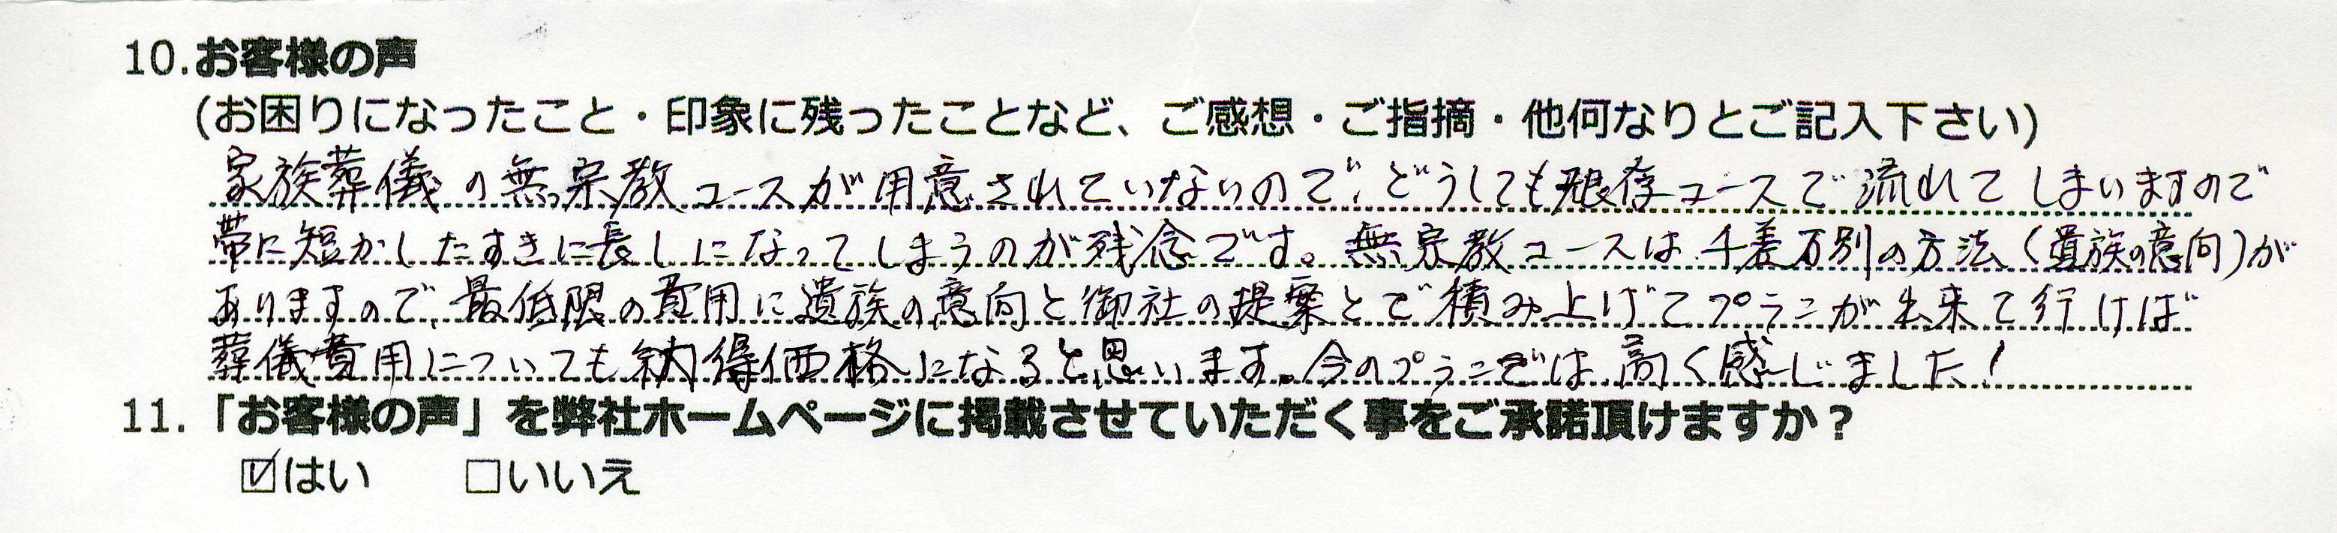 10.お客様の声
(お困りになったこと・印象に残ったことなど、ご感想・ご指摘・他何なりとご記入下さい)
家族葬儀の無宗教コースが用意されていないので、どうしても既存コースで流れてしまいますので
帯に短かしたすきに長しになってしまうのが残念です。無宗教コースは千差万別の方法(遺族の意向)が
ありますので、最低限の費用に遺族の意向と御社の提案とで積み上げてプランが出来て行けば
葬儀費用についても納得価格になると思います。今のプランでは高く感じました!
11.「お客様の声」を弊社ホームページに掲載させていただく事をご承諾頂けますか?
☑はい □いいえ